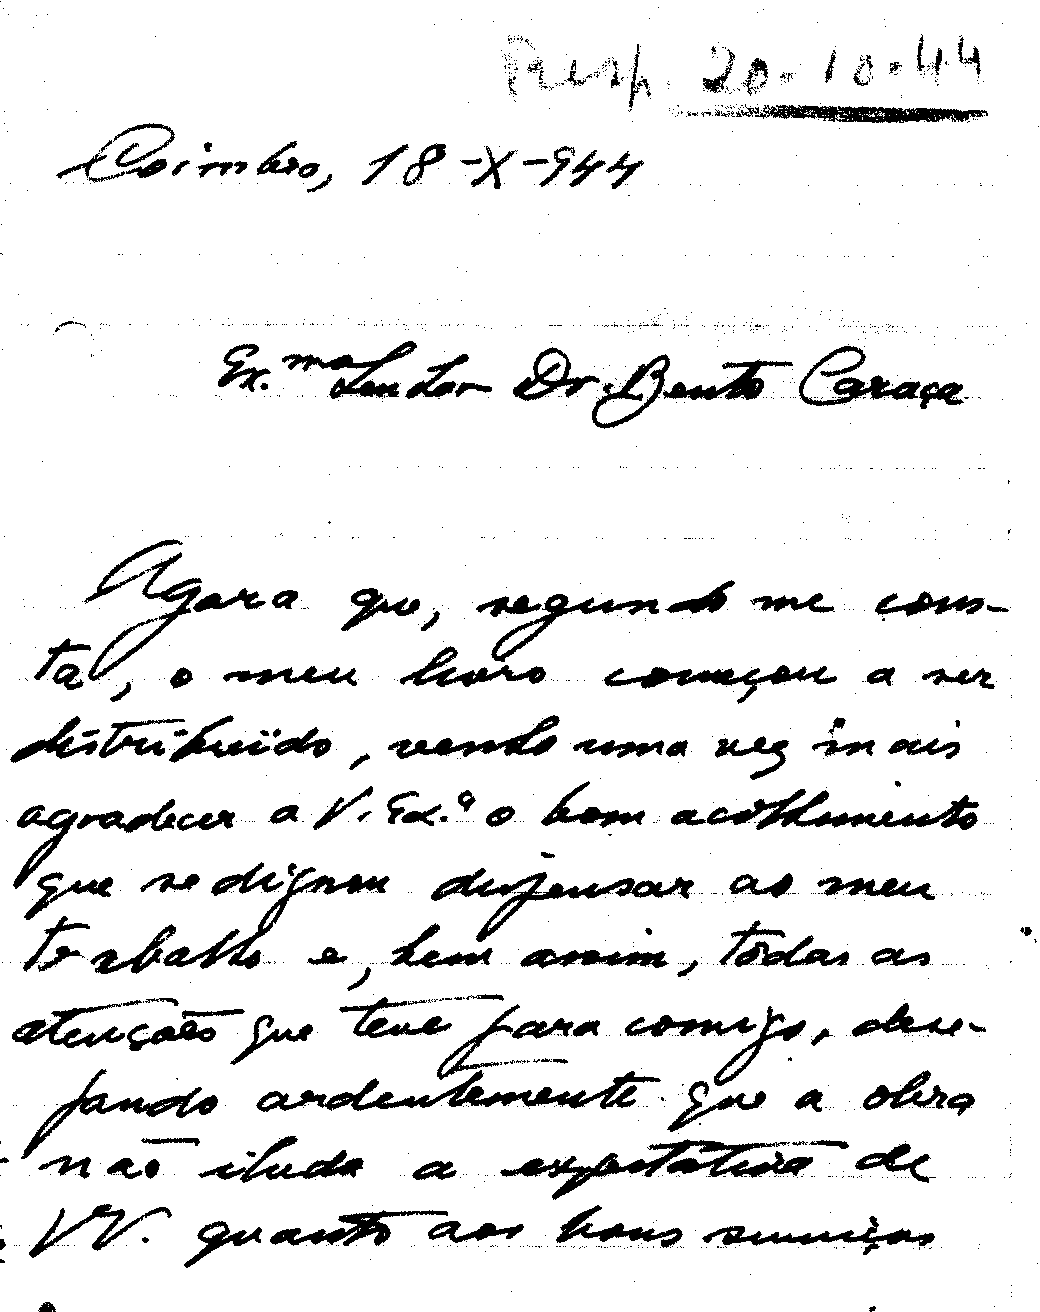 Resp. 20-10-44
Coimbra, 18-X-944
Ex.mo Senhor Dr. Bento Caraça
Agora que, segundo me cons-
ta, o meu livro começou a ser
distribuído, venho uma vez mais
agradecer a V. Ex.a o bom acolhimento
que se dignou dispensar ao meu
trabalho e, bem assim, todas as
atenções que teve para comigo, dese-
jando ardentemente que a obra
não iluda a expectativa de
VV. quanto aos bons serviços